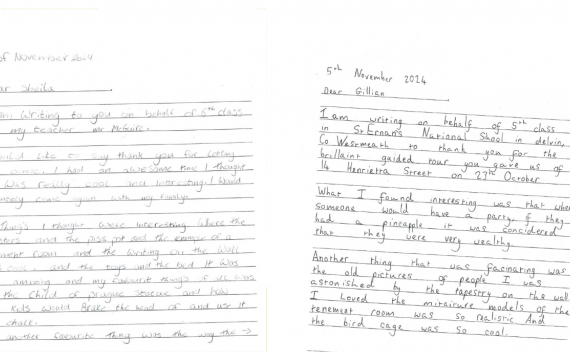 of November 2024
Sheila
writing to you on behalf of 6th class
my teacher Mr McGuire.
like to say thank you for letting
come. I had an awesome time I thought
was really cool and interesting. I would
come again with my family
things I thought were interesting where the
and the piss pot and the example of a
room and the writing on the wall
and the toys and the bed It was
amazing and my favourite things of all was
the child of prague statue and how
kids would Brake the head of and use it
chalk.
another favourite thing was the way the →
5th November 2024
Dear Gillian
I am writing on behalf of 5th class
in St Ernans National Shool in delvin,
Co Westmeath to thank you for the
brillaint guided tour you gave us of
14 Henrietta Street on 23th October
What I found interesting was that when
someone would have a party if they
had a pineapple it was considered
that they were very wealthy
Another thing that was facinating was
the old pictures of people I was
astonished by the tapestry on the wall
I Loved the mitaicure models of the
tenement room was so realistic And
the bird cage was so cool.